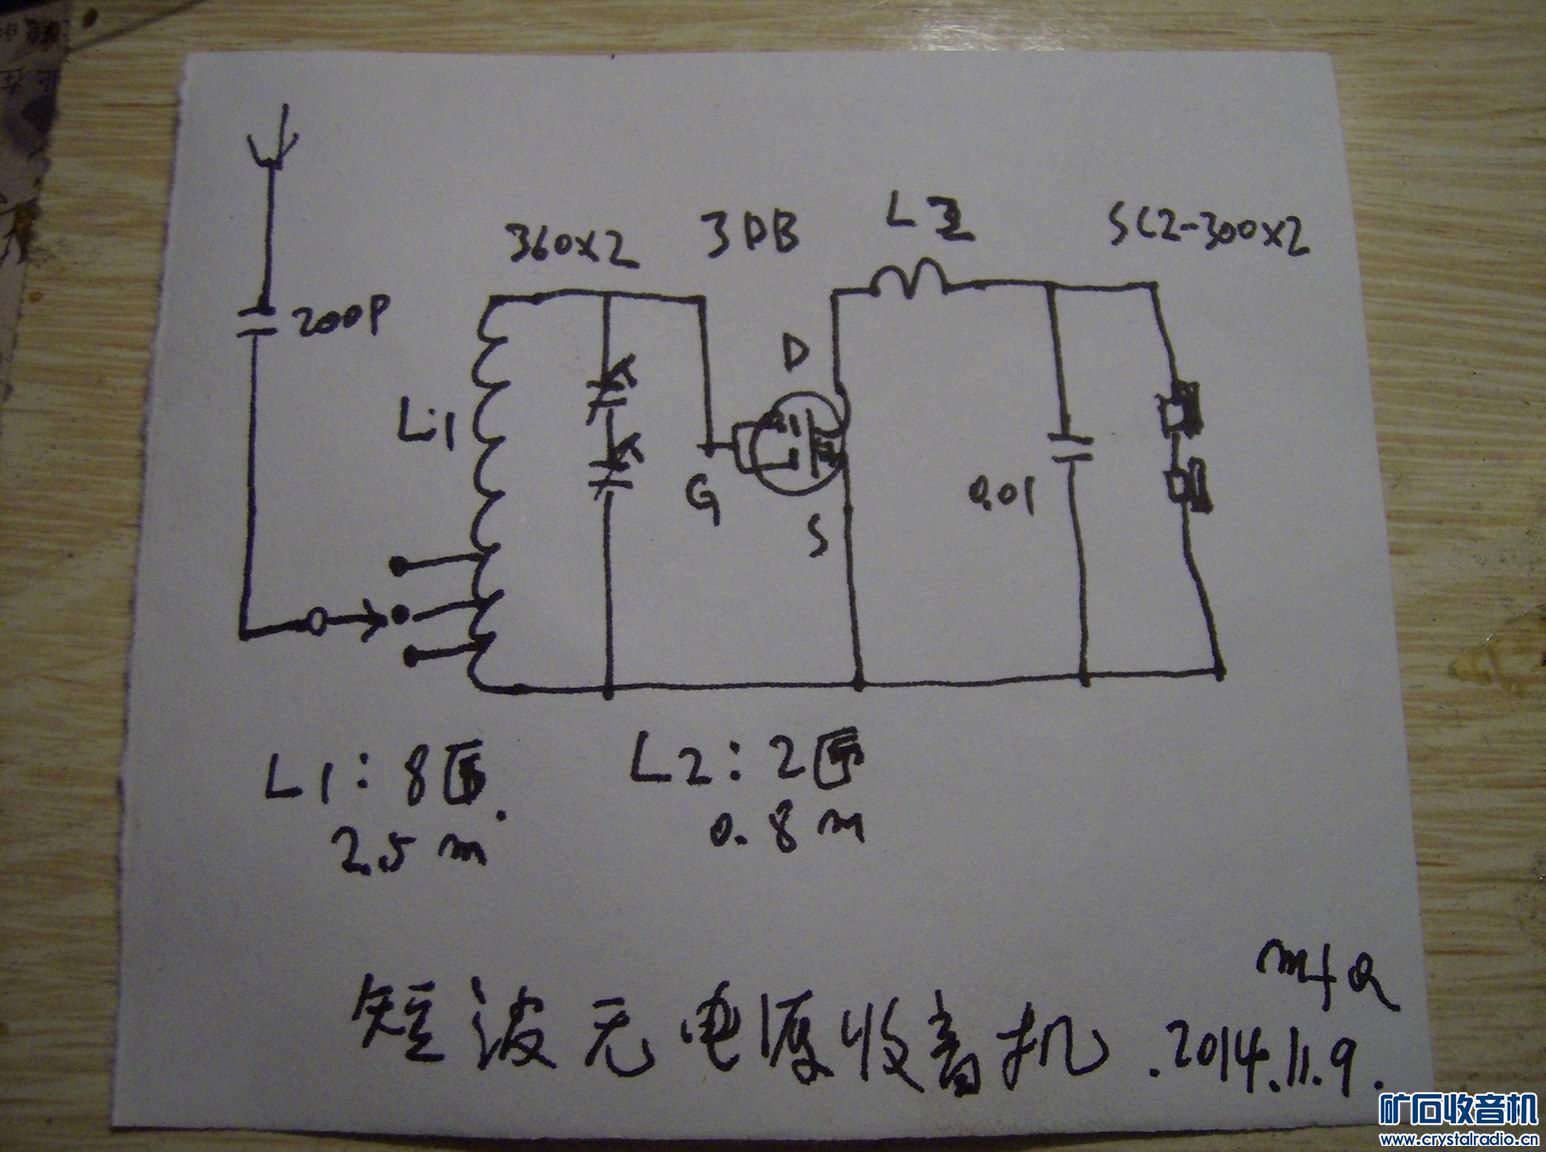 360×2
3DB
L2
SC2-300×2
200P
L1
D
G
S
0.01
L1：8匝.
2.5 m
L2：2匝
0.8 m
短波无电源收音机.2014.11.9.
矿石收音机
www.crystalradio.cn